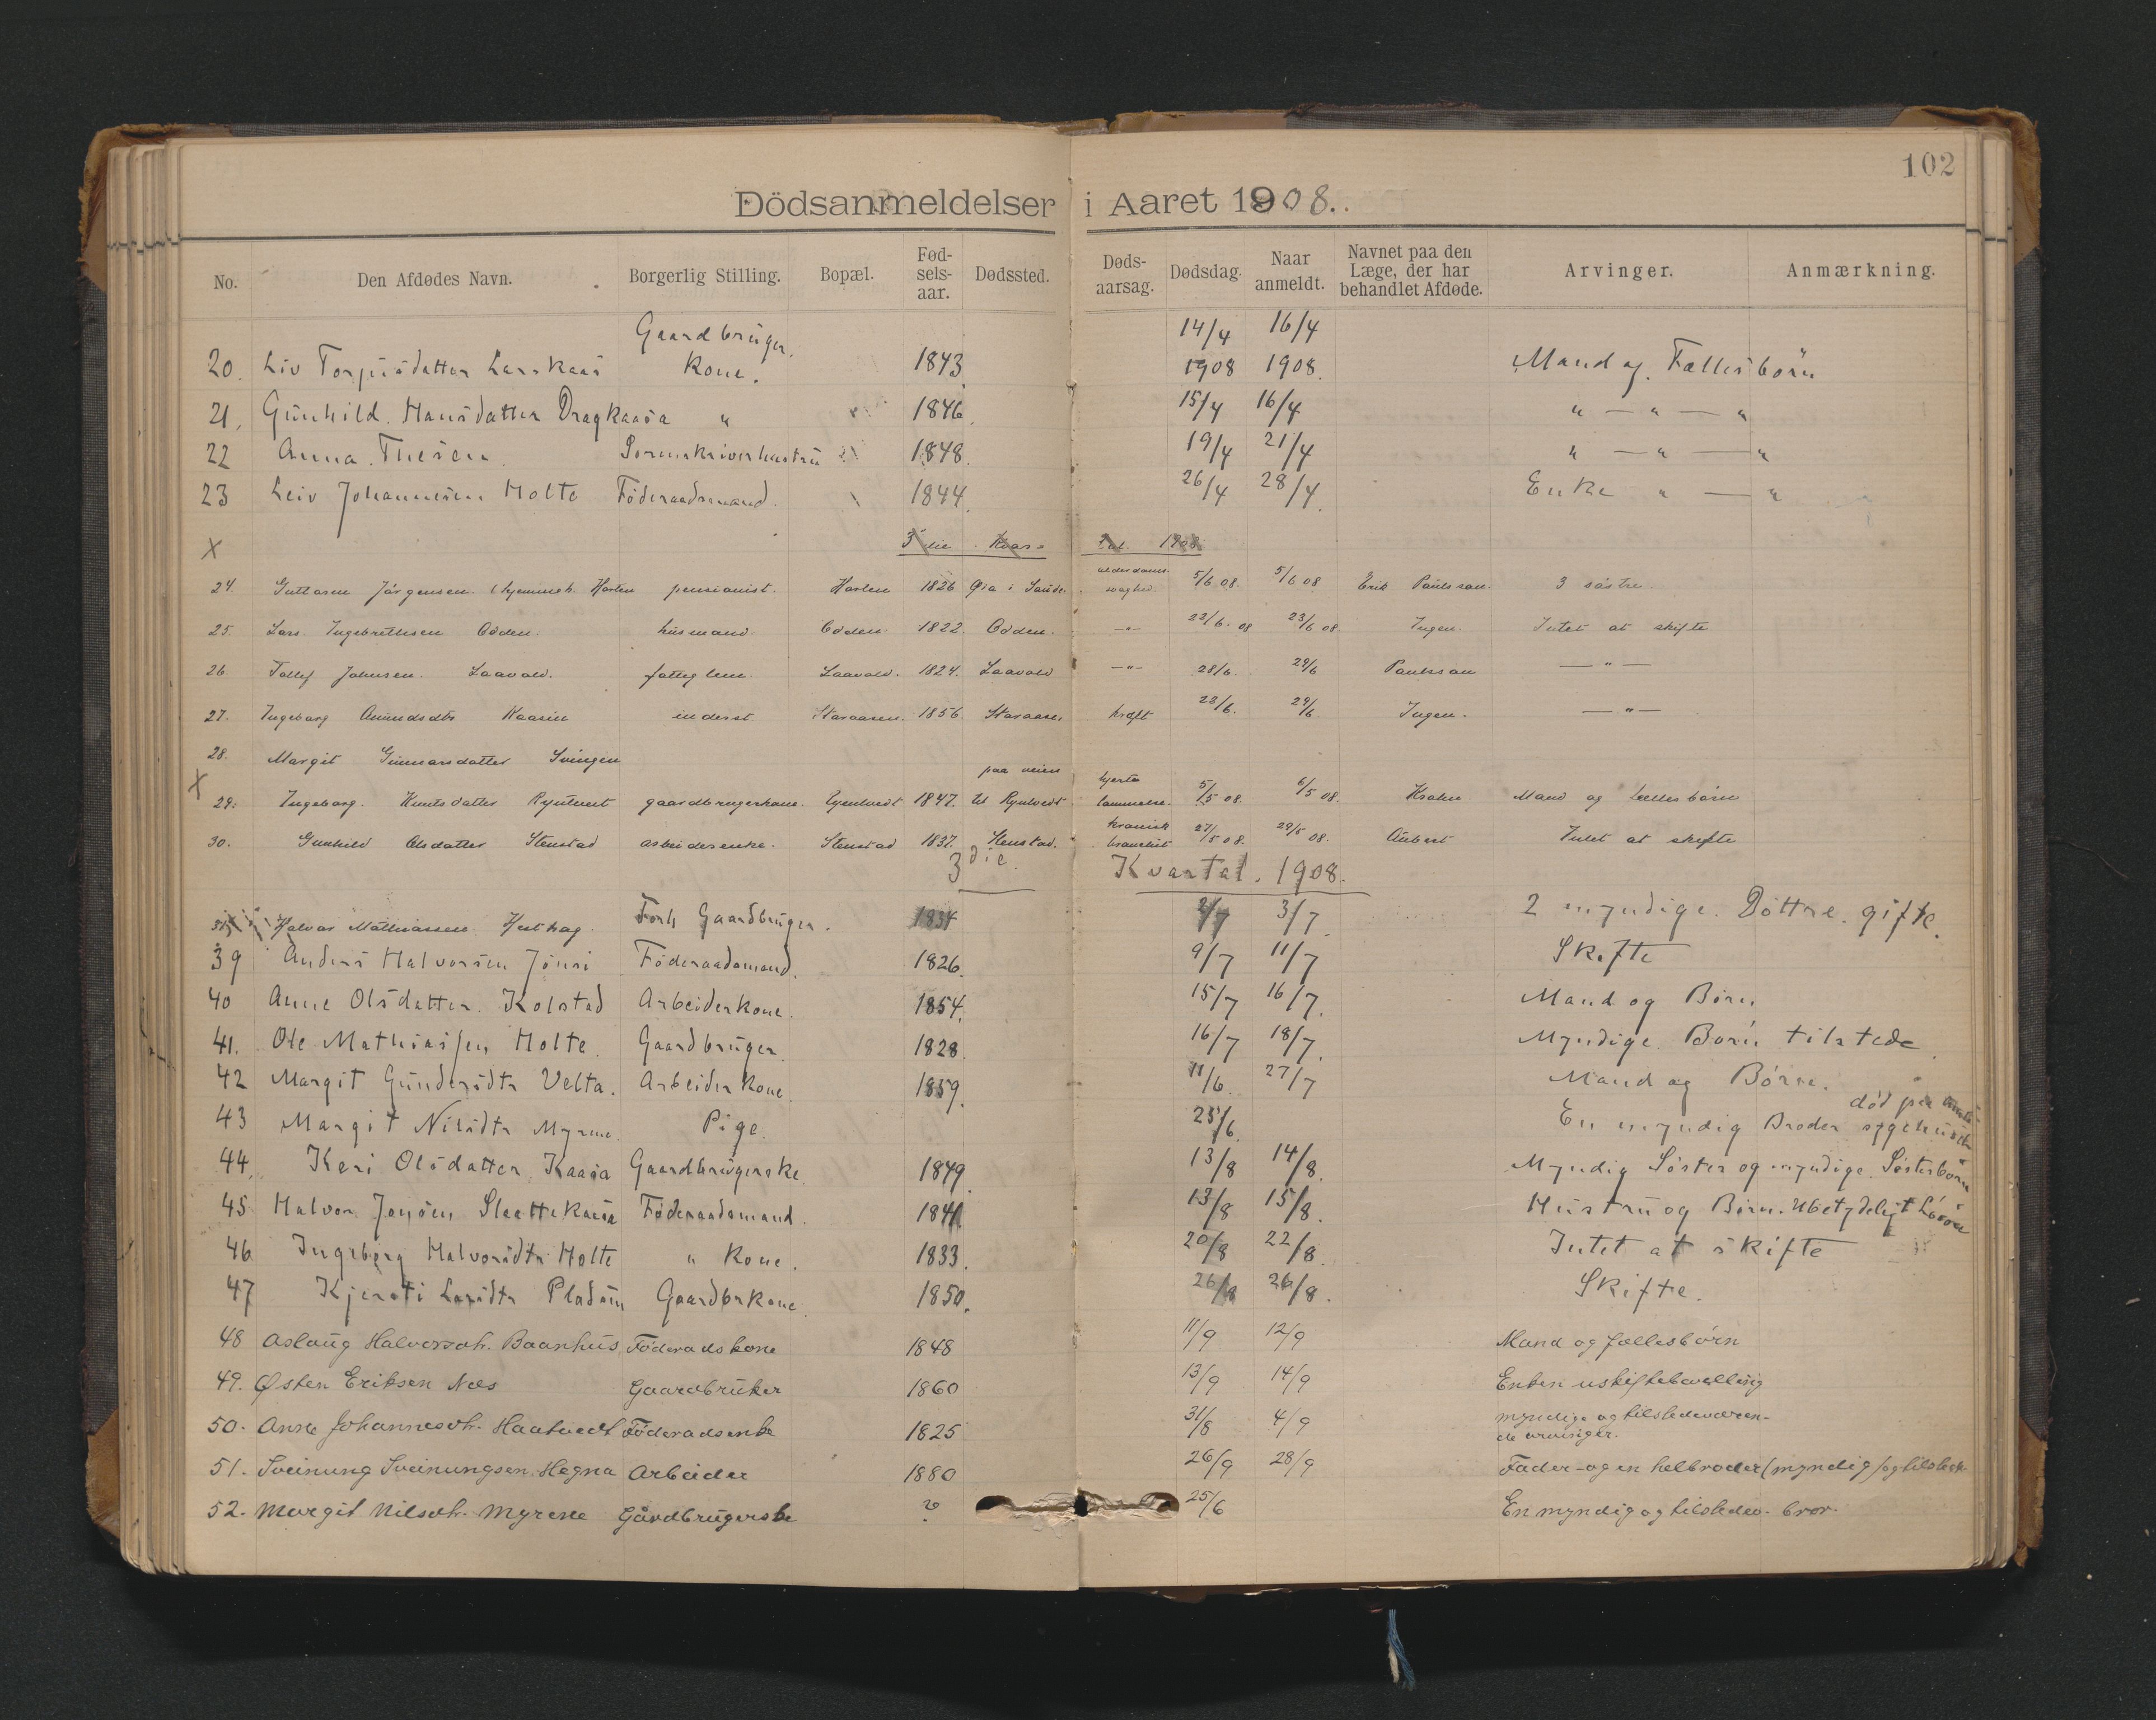 102
Dödsanmeldelser i Aaret 1908.
No. Den Afdødes Navn. Borgerlig Stilling. Bopæl. Fødselsaar. Dødssted. Dødsaarsag. Dødsdag. Naar anmeldt. Navnet paa den Læge, der har behandlet Afdøde. Arvinger. Anmærkning.
Gaardbrüger 14/4 16/4
20. Liv Kone. 1843 1908 1908. Mand og Fællesbörn
21. Günhild Hansdatter Dragkaasa " 1846 15/4 16/4 " — " — "
22 Anna Thesen Sorenskriverhustrü 1848 19/4 21/4 " — " — "
23 Leiv Johannesen Holte Föderaadsmand 1844 26/4 28/4 Enke " — "
X 3die Kvartal 1908
24. Guttorm Jörgensen Hjemmeh. Harlen pensionist. Harlen 1826 Gra i Alderdoms 5/6 08. 5/6 08 Erik Paulsson. 3 söstre
svaghed.
25. Lars Ingebrethsen Odden. hüsmand Odden 1822. Odden. —"— 22/6. 08 23/6 08. Ingen. Intet at skifte
26. Tollef Johnsen Laavald. fattiglem Laavald. 1824. Laavald —"— 28/6. 29/6 Paulsson — " —
27. Ingeborg Amundsdtr Kaasin inderst Staraasen. 1856. Staraasen kræft 28/6. 29/6 Ingen. — " —
28. Margit Gunnarsdatter Svingen
X paa veien hjerte
29. Ingeborg Knutsdatter Ryntveit gaardbrugerkone 1847. til lammelse. 5/5 08. 6/5 08. Krohn Mand og fælles börn
kronisk
30. Gunhild Olsdatter Stenstad arbeiderenke. Stenstad 1837. Stenstad. 27/5 08. 29/5 08. Aubert Intet at skifte
3die Kvartal. 1908.
Halvor Mathiassen Forh Gaardbrüger. 1834 2/7 3/7. 2 myndige Döttre gifte.
39 Anders Halvorsen Jönsi Föderaadsmand. 1826. 9/7 11/7 Skifte
40 Anne Olsdatter Kolstad Arbeiderkone. 1854. 15/7 16/7. Mand og Børn
41. Ole Mathiassen Holte Gaardbrüger. 1828 16/7 18/7. Myndige Børn tilstede
42 Margit Gündersdtr Velta. Arbeider Kone 1859. 11/6. 27/7 Mand og Børn.
43 Margit Nilsdtr Myrene Pige. 25/6. En myndig Broder død paa sygehuset
44. Kari Olsdatter Kaasa Gaardbrügerske 1849. 13/8 14/8. Myndig Söster og myndige Søsterbørn
45 Halvor Jonsen Slaettekaasa Föderaadsmand. 1841 13/8 15/8. Hüstrü og Børn. Ubetydeligt Løsøre
46 Ingeborg Halvorsdtr Holte " Kone. 1833. 20/8 22/8. Intet at skifte
47 Kjersti Larsdtr Pladsen Gaardbrkone. 1850. 26/8 26/8. Skifte.
48 Aslaug Halvorsdtr. Baanhüs Föderadskone 1848 11/9 12/9 Mand og fællesbörn
49. Østen Eriksen Næs Gaardbrüker 1860 13/9 14/9 Enken uskiftebevilling
50. Anne Johannesdtr. Haatvedt Föderadsenke 1825 31/8 4/9 myndige og tilstedeværen-
de arvinger.
51. Sveinung Sveinungsen Hegna Arbeider 1880 26/9 28/9 Fader og en helbroder (myndig) og tilstede
52. Margit Nilsdtr. Myrene Gårdbrügerske ? 25/6 En myndig og tilstedev. bror.